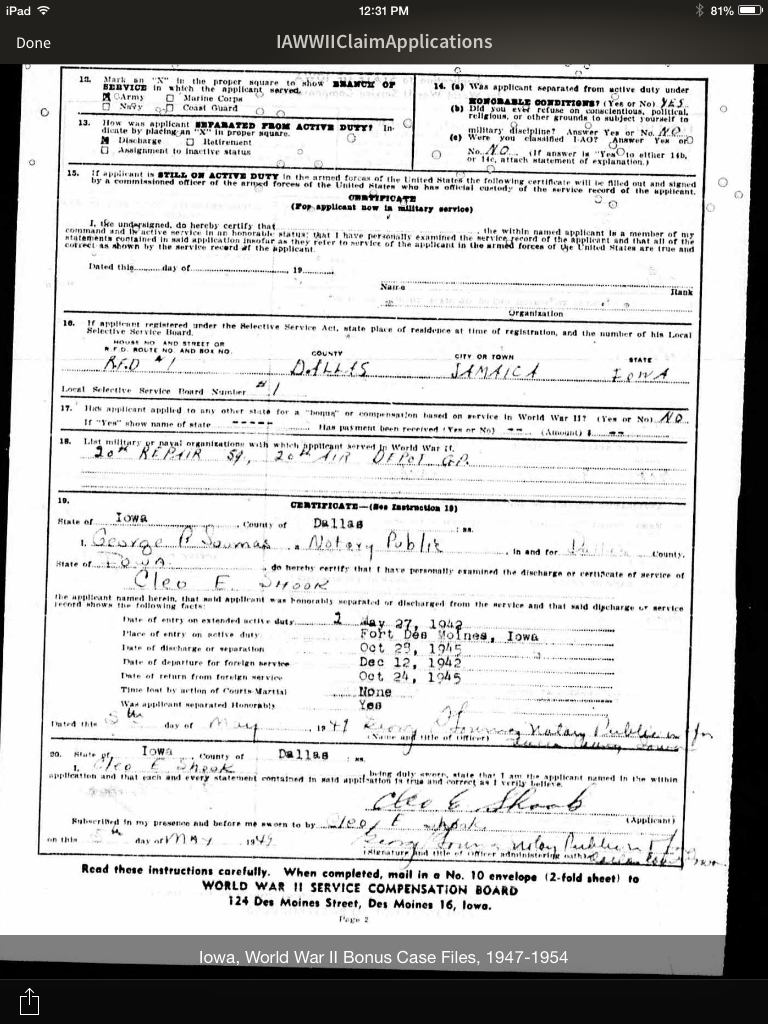 iPad 12:31 PM 81%
Done IAWWIIClaimApplications
12. Mark an "X" in the proper square to show BRANCH OF
SERVICE in which the applicant served.
☒ Army ☐ Marine Corps
☐ Navy ☐ Coast Guard
13. How was applicant SEPARATED FROM ACTIVE DUTY? In-
dicate by placing an "X" in proper square.
☒ Discharge ☐ Retirement
☐ Assignment to inactive status
14. (a) Was applicant separated from active duty under
HONORABLE CONDITIONS? (Yes or No) YES
(b) Did you ever refuse on conscientious, political,
religious, or other grounds to subject yourself to
military discipline? Answer Yes or No. NO
(c) Were you classified 1-AO? Answer Yes or
No. NO (If answer is "Yes" to either 14b,
or 14c, attach statement of explanation.)
15. If applicant is STILL ON ACTIVE DUTY in the armed forces of the United States the following certificate will be filled out and signed
by a commissioned officer of the armed forces of the United States who has official custody of the service record of the applicant.
CERTIFICATE
(For applicant now in military service)
I, the undersigned, do hereby certify that , the within named applicant is a member of my
command and in active service in an honorable status; that I have personally examined the service record of the applicant and that all of the
statements contained in said application insofar as they refer to service of the applicant in the armed forces of the United States are true and
correct as shown by the service record of the applicant.
Dated this day of , 19
Name Rank
Organization
16. If applicant registered under the Selective Service Act, state place of residence at time of registration, and the number of his Local
Selective Service Board.
HOUSE NO. AND STREET OR
R.F.D. ROUTE NO. AND BOX NO. COUNTY CITY OR TOWN STATE
R.F.D #1 DALLAS JAMAICA IOWA
Local Selective Service Board Number #1
17. Has applicant applied to any other state for a "bonus" or compensation based on service in World War II? (Yes or No) NO
If "Yes" show name of state ----- Has payment been received (Yes or No) -- (Amount) $ --
18. List military or naval organizations with which applicant served in World War II.
20th REPAIR SQ, 20th AIR DEPOT GP.
19. CERTIFICATE—(See Instruction 19)
State of Iowa , County of Dallas : ss.
I, George P , a Notary Public , in and for Dallas County,
State of Iowa , do hereby certify that I have personally examined the discharge or certificate of service of
Cleo E. SHOOK
the applicant named herein, that said applicant was honorably separated or discharged from the service and that said discharge or service
record shows the following facts:
Date of entry on extended active duty May 27, 1942
Place of entry on active duty Fort Des Moines, Iowa
Date of discharge or separation Oct 29, 1945
Date of departure for foreign service Dec 12, 1942
Date of return from foreign service Oct 24, 1945
Time lost by action of Courts-Martial None
Was applicant separated Honorably Yes
Dated this 5th day of May 1949 Notary Public in & for
(Name and title of Officer)
20. State of Iowa County of Dallas : ss.
I, Cleo E Shook being duly sworn, state that I am the applicant named in the within
application and that each and every statement contained in said application is true and correct as I verily believe.
Cleo E Shook
(Applicant)
Subscribed in my presence and before me sworn to by Cleo E Shook
on this 5th day of MAY 1949 Notary Public in & for
(Signature and title of Officer administering oath)
Read these instructions carefully. When completed, mail in a No. 10 envelope (2-fold sheet) to
WORLD WAR II SERVICE COMPENSATION BOARD
124 Des Moines Street, Des Moines 16, Iowa.
Page 2
Iowa, World War II Bonus Case Files, 1947-1954